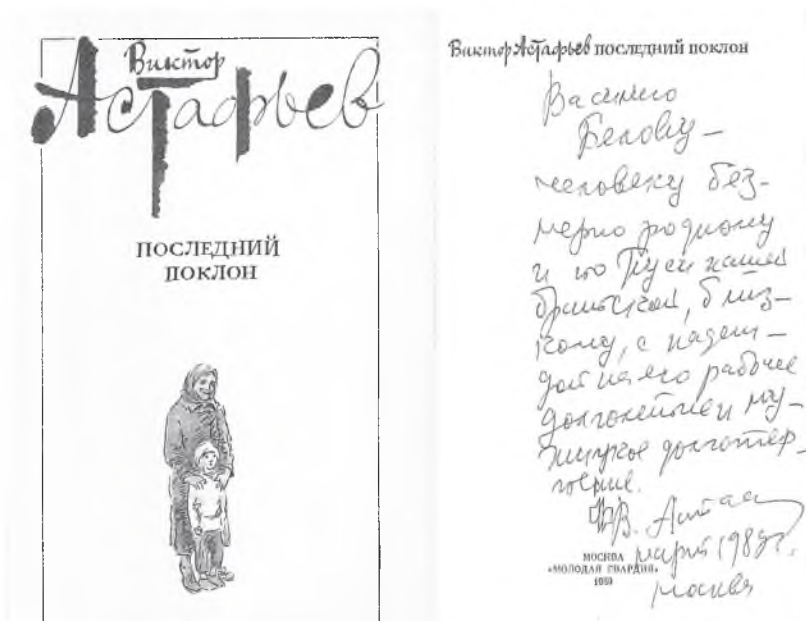 Виктор
Астафьев
ПОСЛЕДНИЙ
ПОКЛОН
Виктор Астафьев ПОСЛЕДНИЙ ПОКЛОН
Василию
Белову —
человеку без-
мерно родному
и по Руси нашей
, близ-
кому, с надеж-
дой на его рабочее
долголетие и му-
жицкое долготер-
пение.
В. Астаф
март 1989г.
Москва
МОСКВА
«МОЛОДАЯ ГВАРДИЯ»
1989